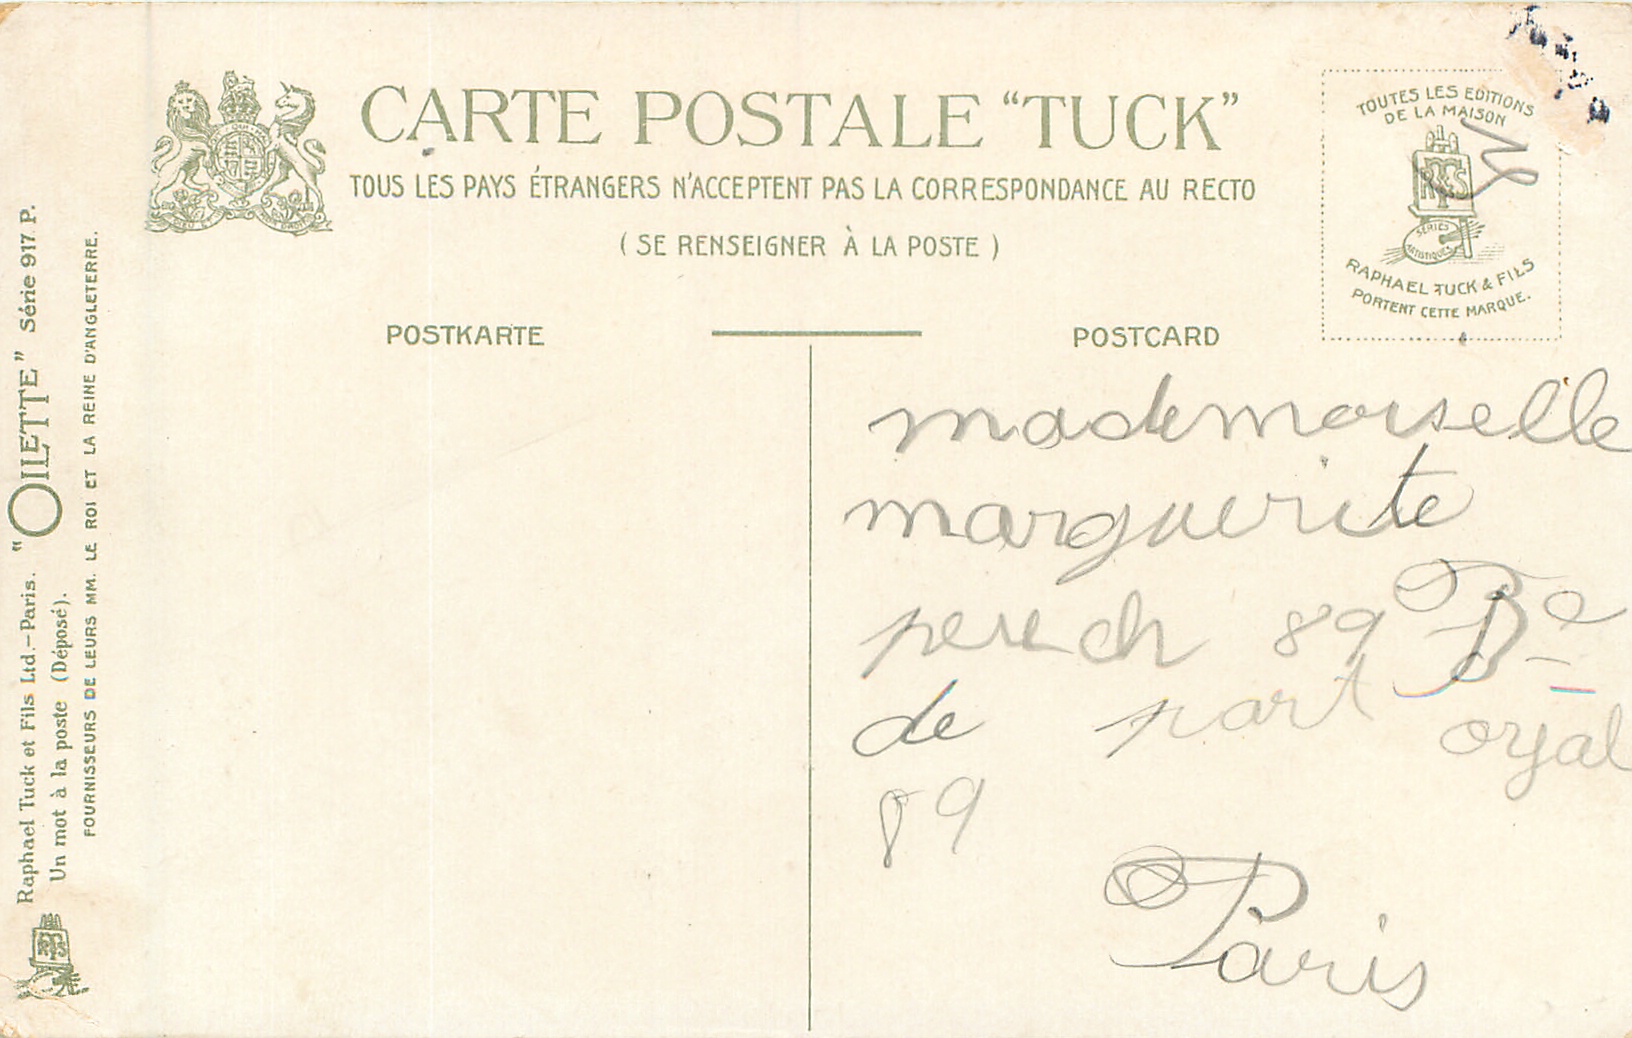 CARTE POSTALE “TUCK”
TOUS LES PAYS ÉTRANGERS N'ACCEPTENT PAS LA CORRESPONDANCE AU RECTO
(SE RENSEIGNER À LA POSTE)
POSTKARTE
POSTCARD
TOUTES LES EDITIONS
DE LA MAISON
SERIES
ARTISTIQUES
RAPHAEL TUCK & FILS
PORTENT CETTE MARQUE.
Raphael Tuck et Fils Ltd.–Paris. “OILETTE” Série 917. P.
Un mot à la poste (Déposé).
FOURNISSEURS DE LEURS MM. LE ROI ET LA REINE D'ANGLETERRE.
mademoiselle
marguerite
89 Bd
de port oryal
89
Paris